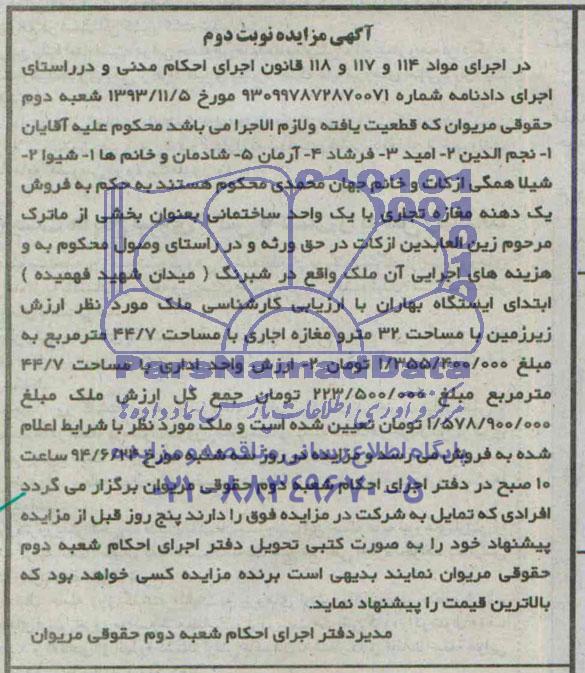 آگهی مزایده نوبت دوم
در اجرای مواد ۱۱۴ و ۱۱۷ و ۱۱۸ قانون اجرای احکام مدنی و درراستای
اجرای دادنامه شماره ۹۳۰۹۹۷۸۷۲۸۷۰۰۷۱ مورخ ۱۳۹۳/۱۱/۵ شعبه دوم
حقوقی مریوان که قطعیت یافته ولازم الاجرا می باشد محکوم علیه آقایان
۱- نجم الدین ۲- امید ۳- فرشاد ۴- آرمان ۵- شادمان و خانم ها ۱- شیوا ۲-
شیلا همگی ازکات و خانم جهان محمدی محکوم هستند به حکم به فروش
یک دهنه مغازه تجاری با یک واحد ساختمانی بعنوان بخشی از ماترک
مرحوم زین العابدین ازکات در حق ورثه و در راستای وصول محکوم به و
هزینه های اجرایی آن ملک واقع در شبرنگ ( میدان شهید فهمیده )
ابتدای ایستگاه بهاران با ارزیابی کارشناسی ملک مورد نظر ارزش
زیرزمین با مساحت ۳۲ مترو مغازه اجاری با مساحت ۴۴/۷ مترمربع به
مبلغ ۱/۳۵۵/۴۰۰/۰۰۰ تومان ۲- ارزش واحد اداری با مساحت ۴۴/۷
مترمربع مبلغ ۲۲۳/۵۰۰/۰۰۰ تومان جمع کل ارزش ملک مبلغ
۱/۵۷۸/۹۰۰/۰۰۰ تومان تعیین شده است و ملک مورد نظر با شرایط اعلام
شده به فروش می رسد و مزایده در روز سه شنبه مورخ ۹۴/۶/۲۴ ساعت
۱۰ صبح در دفتر اجرای احکام شعبه دوم حقوقی مریوان برگزار می گردد
افرادی که تمایل به شرکت در مزایده فوق را دارند پنج روز قبل از مزایده
پیشنهاد خود را به صورت کتبی تحویل دفتر اجرای احکام شعبه دوم
حقوقی مریوان نمایند بدیهی است برنده مزایده کسی خواهد بود که
بالاترین قیمت را پیشنهاد نماید.
مدیردفتر اجرای احکام شعبه دوم حقوقی مریوان
ParsNamadData
مرکز فرآوری اطلاعات پارس نماد داده ها
پایگاه اطلاع رسانی مناقصه و مزایده
۰۲۱-۸۸۳۴۹۶۷۰-۵